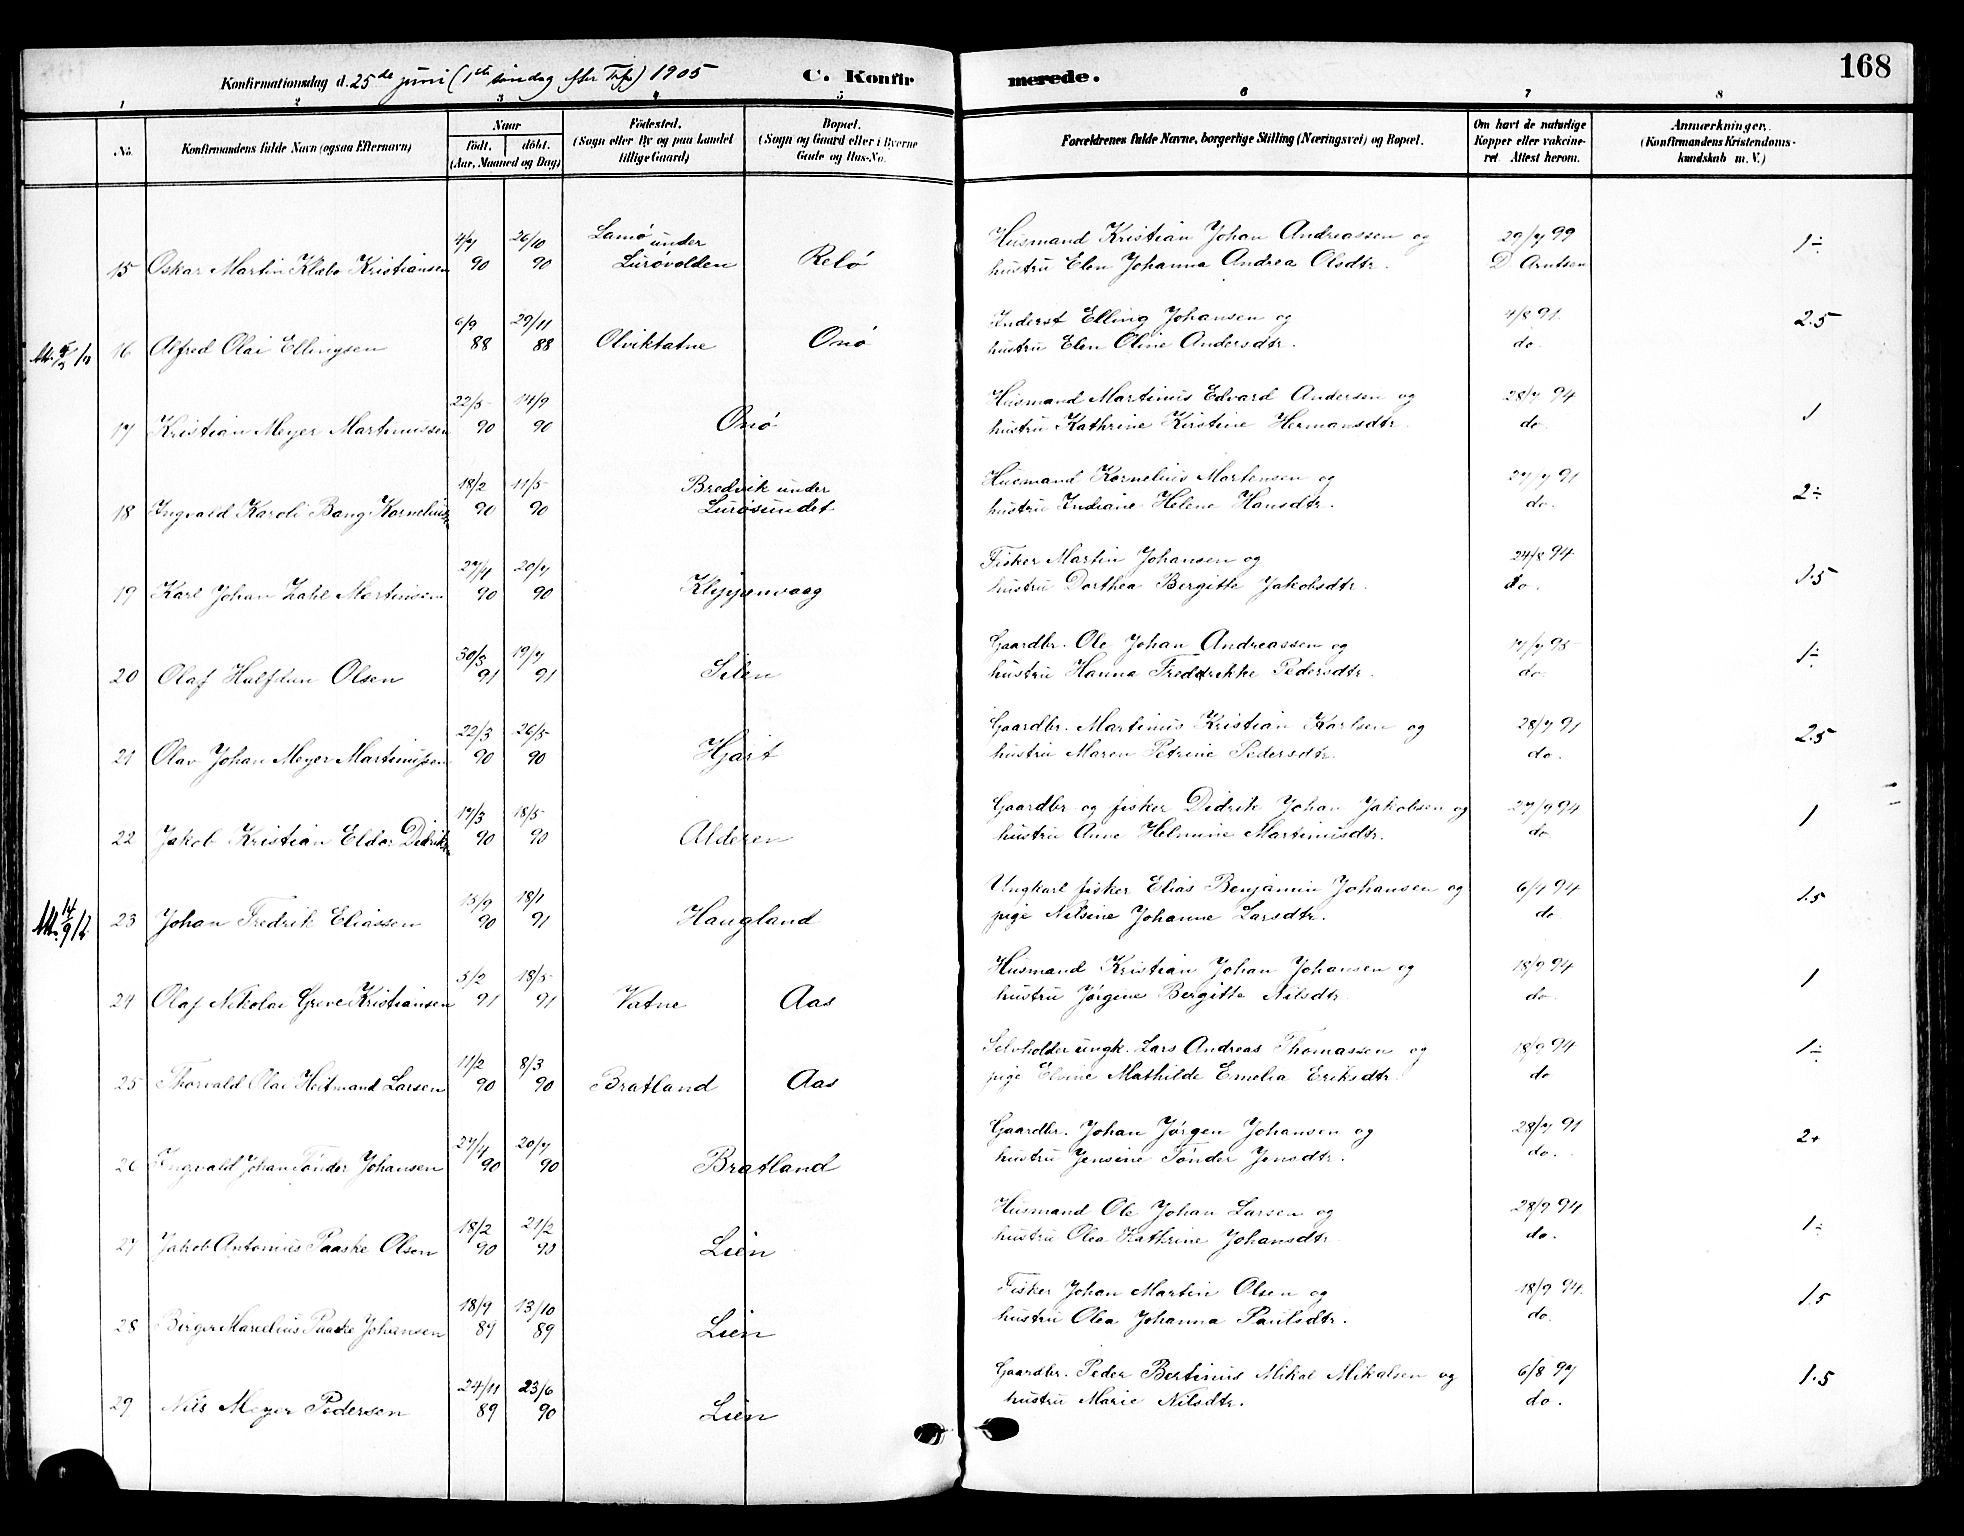 Konfirmationsdag d. 25de juni (1ste søndag efter Trf) 1905 C. Konfirmerede. 168
1 2 3 4 5 6 7 8
No. Konfirmandens fulde Navn (ogsaa Efternavn) Naar født, døbt. (Aar, Maaned og Dag) Fødested. (Sogn eller By og paa Landet tillige Gaard) Bopæl. (Sogn og Gaard eller i Byerne Gade og Hus-No. Forældrenes fulde Navne, borgerlige Stilling (Næringsvei) og Bopæl. Om havt de naturlige Kopper eller vakcineret. Attest herom. Anmærkninger. (Konfirmandens Kristendomskundskab m. V.)
4/7 26/10 Lamø under Husmand Kristian Johan Andreassen og 29/7 99 1÷
15 Oskar Martin Klæbo Kristiansen 90 90 Lurøvolden Relø hustru Elen Johanna Andrea Olsdtr. D Arntsen
6/9 29/11 Inderst Elling Johansen og 4/8 91. 2.5
16 Alfred Olai Ellingsen 88 88 Olviktatne Onø hustru Elen Oline Andersdtr. do.
22/5 14/9 Husmand Martinus Edvard Andersen og 28/7 94 1
17 Kristian Meyer Martinussen 90 90 Onø hustru Kathrine Kirstine Hermansdtr. do.
18/2 11/5 Bredvik under Husmand Kornelius Mortensen og 27/7 91 2÷
18 Ingvald Karoli Bang Kornelius. 90 90 Lurøsundet hustru Indiane Helene Hansdtr. do.
27/4 20/7 Fisker Martin Johansen og 24/8 94 1.5
19 Karl Johan Zahl Martinsen 90 90 Klippenvaag hustru Dorthea Bergitte Jakobsdtr. do.
30/3 19/7 Gaardbr. Ole Johan Andreassen og 17/7 95 1÷
20 Olaf Halfdan Olsen 91 91 Silen hustru Hanna Fredrikke Pedersdtr. do.
22/3 26/5 Gaardbr. Martinus Kristian Karlsen og 28/7 91 2.5
21 Olav Johan Meyer Martinussen 90 90 Hjart hustru Maren Petrine Pedersdtr. do.
17/3 18/5 Gaardbr og fisker Didrik Johan Jakobsen og 27/9 94 1
22 Jakob Kristian Eldor Didriks. 90 90 Alderen hustru Anne Helmine Martinusdtr. do.
15/9 18/1 Ungkarl fisker Elias Benjamin Johansen og 6/4 94 1.5
23 Johan Fredrik Eliassen 90 91 Haugland pige Nilsine Johanne Larsdtr. do
5/2 18/5 Husmand Kristian Johan Johansen og 18/9 94 1
24 Olaf Nikolai Greve Kristiansen 91 91 Vatne Aas hustru Jørgine Bergitte Nilsdtr. do.
11/2 8/3 Selvholder ungk. Lars Andreas Thomassen og 18/9 94 1÷
25 Thorvald Olai Heitmand Larsen 90 90 Bratland Aas pige Elvine Mathilde Emelia Eriksdtr. do
27/4 20/7 Gaardbr. Johan Jørgen Johansen og 28/7 91 2+
26 Ingvald Johan Tønder Johansen 90 90 Bratland hustru Jensine Tønder Jensdtr. do.
18/2 21/2 Husmand Ole Johan Larsen og 28/9 94 1÷
27 Jakob Antonius Paaske Olsen 90 90 Lien hustru Olea Kathrine Johansdtr do.
18/9 13/10 Fisker Johan Martin Olsen og 18/9 94. 1.5
28 Birger Marelius Paaske Johansen 89 89 Lien hustru Olea Johanna Paulsdtr. do.
24/11 23/6 Gaardbr. Peder Bertinus Mikal Mikalsen og 6/8 97 1.5
29 Nils Meyer Pedersen 89 90 Lien hustru Marie Nilsdtr. do.